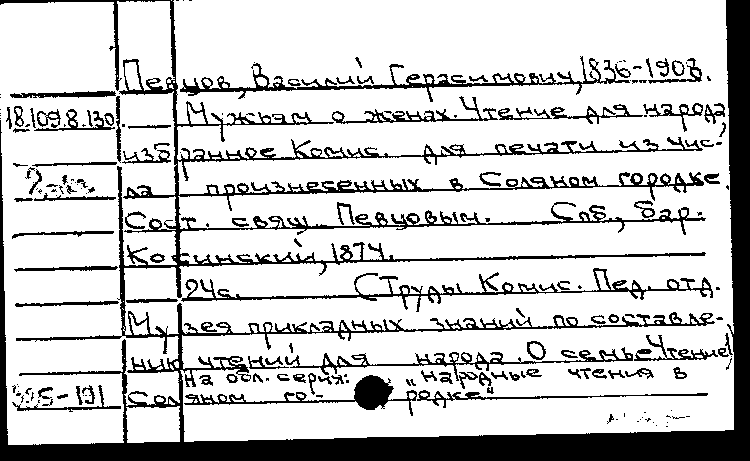 Певцов, Василий Герасимович, 1836-1903.
18.109.8.130. Мужьям о женах. Чтение для народа,
избранное Комис. для печати из чис-
2 экз. ла произнесенных в Соляном городке.
Сост. свящ. Певцовым. Спб., бар.
Косинский, 1874.
24с. (Труды Комис. Пед. отд.
Музея прикладных знаний по составле-
нию чтений для народа. О семье. Чтение)
На обл. серия: „Народные чтения в
Соляном го- родке"